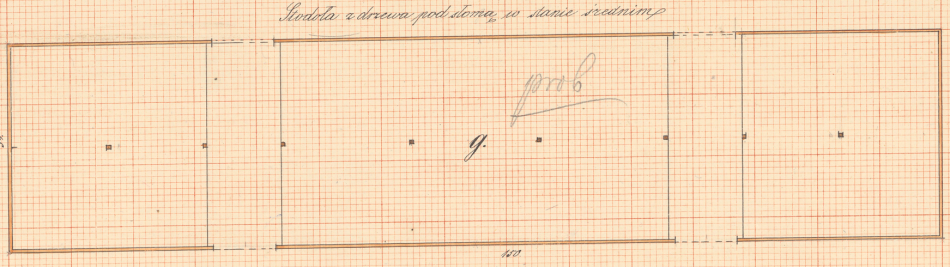 Stodoła z drzewa pod słomą w stanie średnim
prob
g.
150.